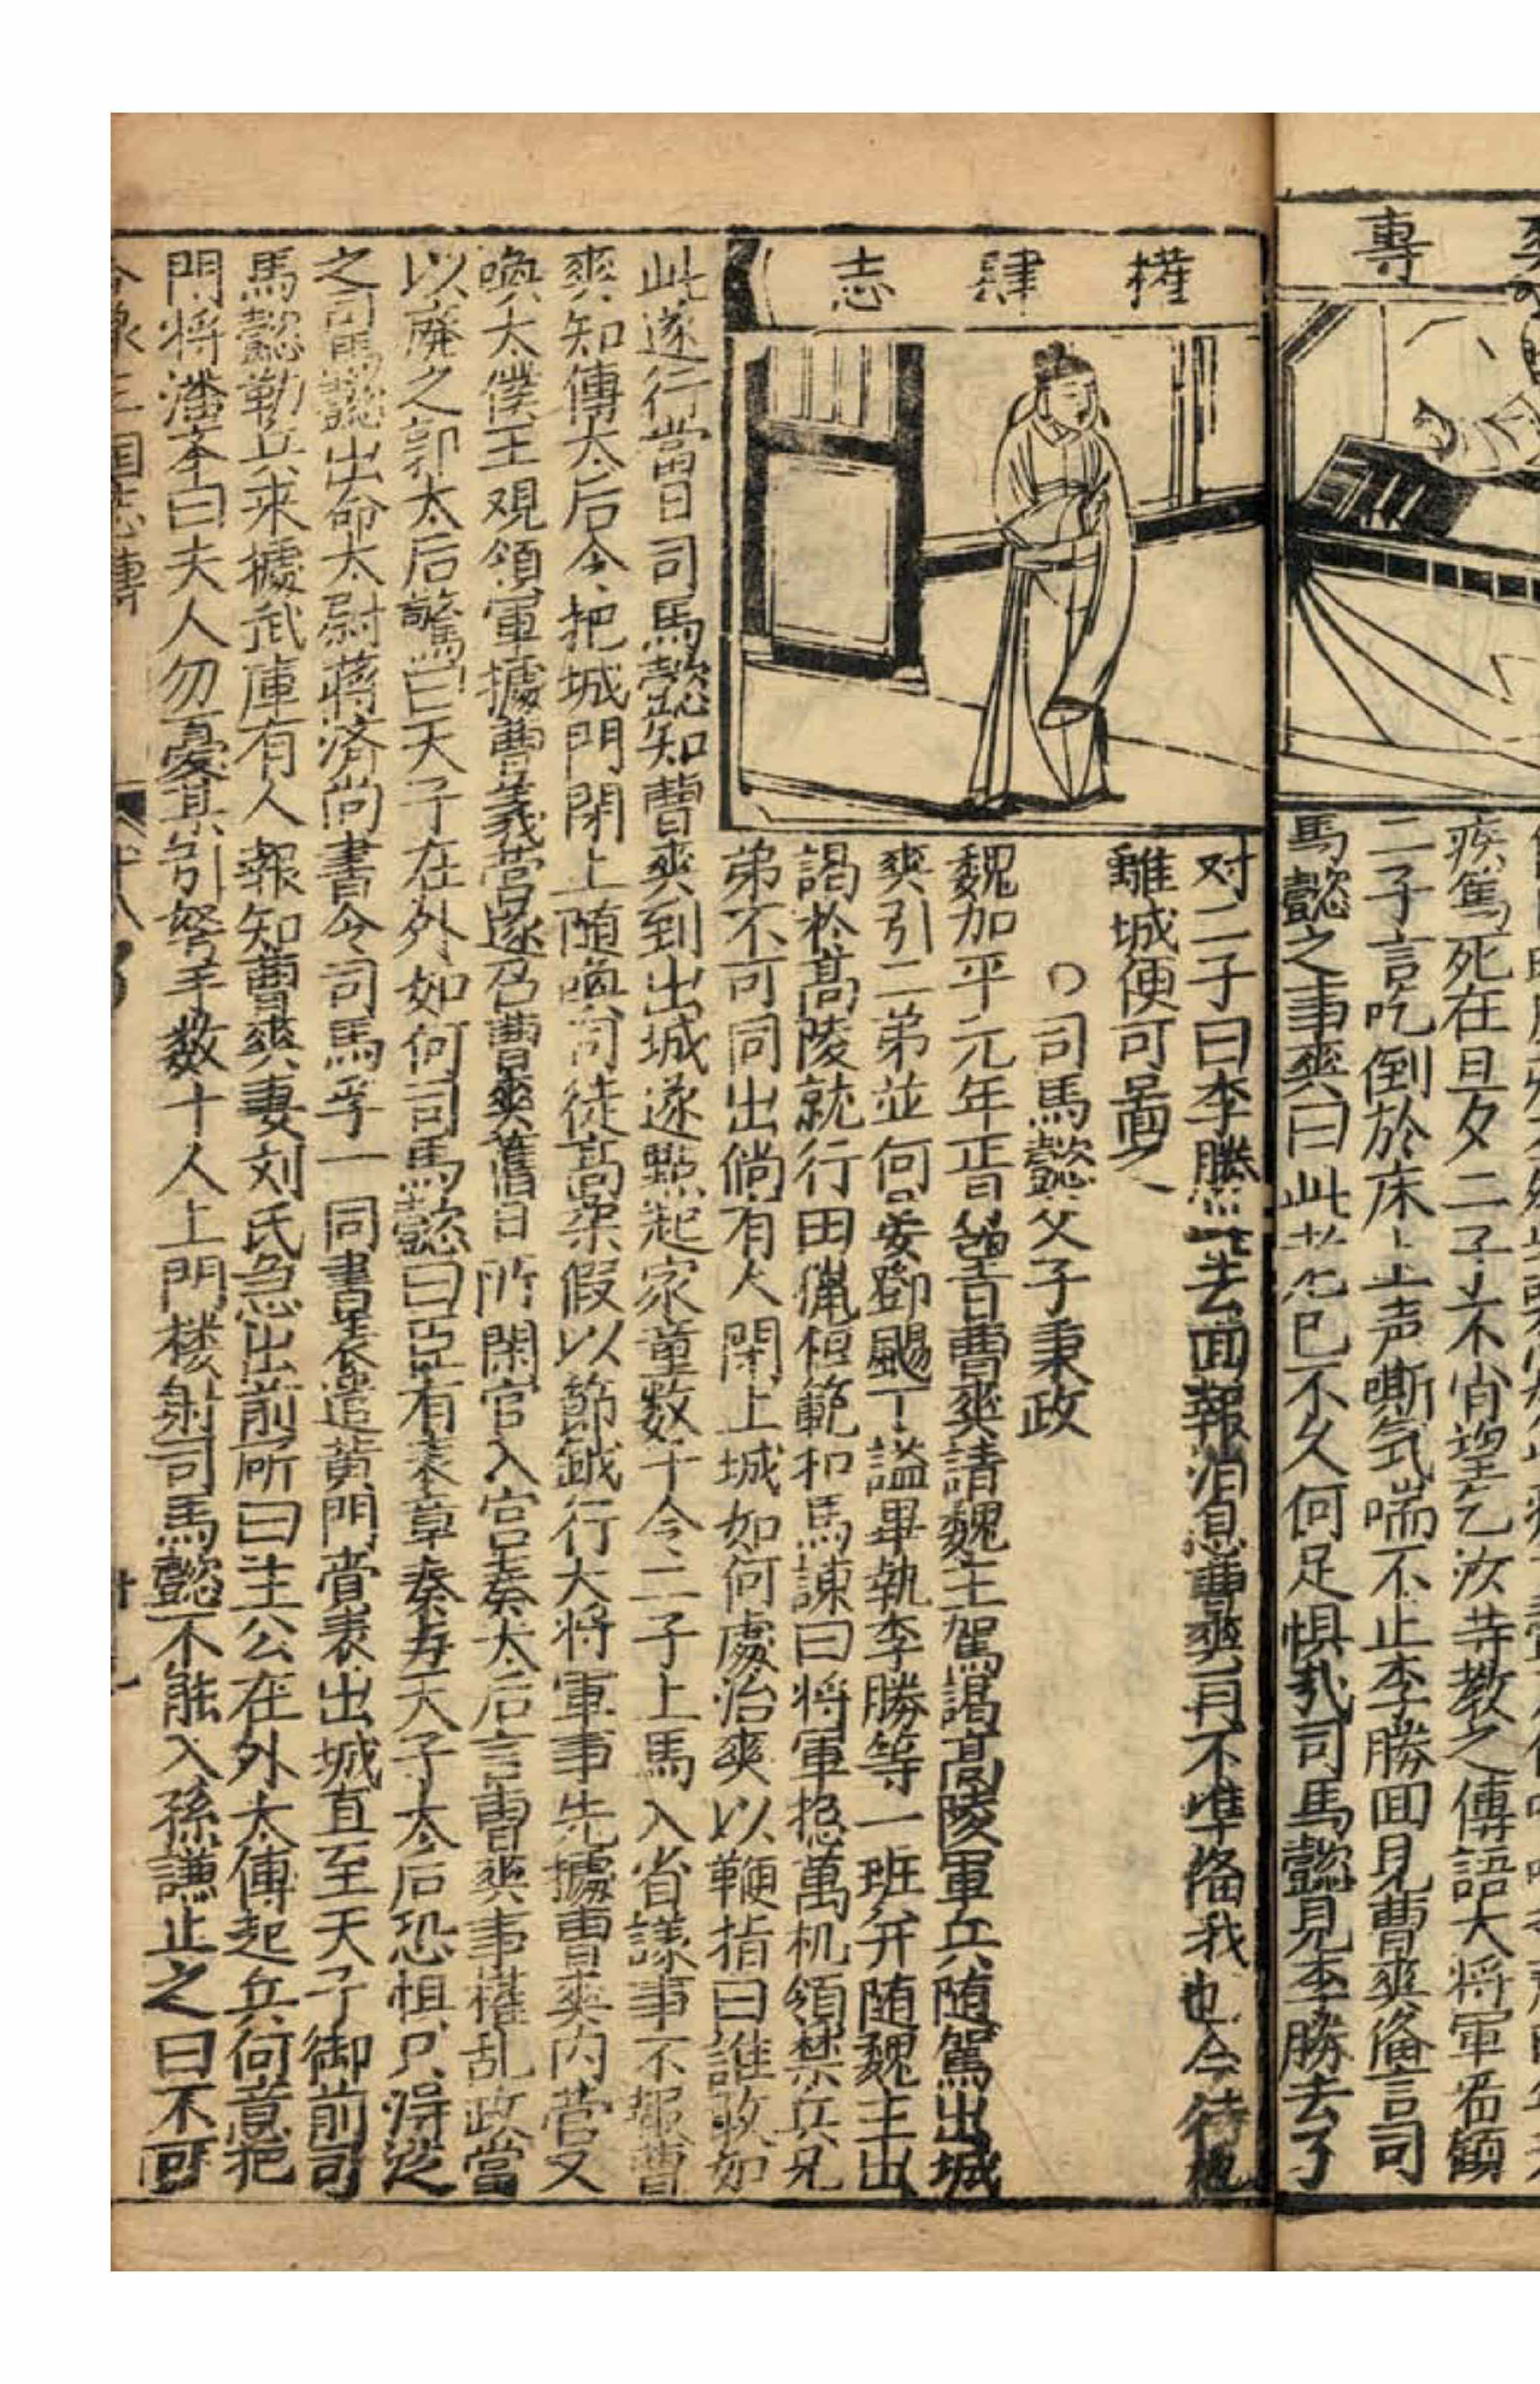 專
疾篤死在旦夕二子不肖望乞汝等教之傳語大将軍若顧
二子言吃倒於床上声嘶氣喘不止李勝回見曹爽俻言司
馬懿之事爽曰此老已不久何足惧哉司馬懿見李勝去了
權肆志
对二子曰李勝此去回報消息曹爽肯不准俻我也今待他
離城便可啚之
〇司馬懿父子秉政
魏加平元年正月曹爽請魏主駕謁高陵軍兵随駕出城
爽引二弟並何晏鄧颺丁謐畢執李勝等一班并随魏主出
謁於高陵就行田獵桓範扣馬諌曰将軍揔萬机領禁兵兄
弟不可同出倘有人閉上城如何處治爽以鞭指曰誰敢如
此遂行當日司馬懿知曹爽到出城遂點起家童数千令二子上馬入省議事不報曹
爽知傳太后令把城門閉上随喚司徒高柔假以節鉞行大将軍事先據曹爽内营又
喚太僕王観領軍據曹羲营遂召曹爽舊日所閑官入宫奏太后言曹爽事權乱政當
以廃之郭太后驚曰天子在外如何司馬懿曰臣有表章奏与天子太后恐惧只得從
之司馬懿出命太尉蒋済尚書令司馬孚一同書表遣黄門賫表出城直至天子御前司
馬懿勒兵来據武庫有人報知曹爽妻刘氏急出前所曰主公在外太傅起兵何意把
門将潘本曰夫人勿憂其引弩手数十人上門楼射司馬懿不能入孫謙止之曰不可
三国志傳